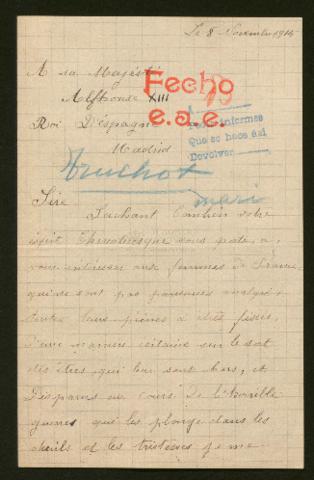 Le 8 Novembre 1914
A sa Majesté
Alphonse XIII
Roi D'Espagne
Madrid
Fecho
e.a.e.
informes
Que se hace así
Devolver
Truchot
mari
Sire
Sachant Combien votre
esprit Chevaleresque vous porte, à
vous intéresser aux femmes de France
qui ne sont pas parvenues malgré
toutes leurs prières à être fixées,
d'une manière certaine sur le sort
des êtres qui leur sont chers, et
Disparus au cours de l'horrible
guerre qui les plonge dans les
deuils et les tristesses je me